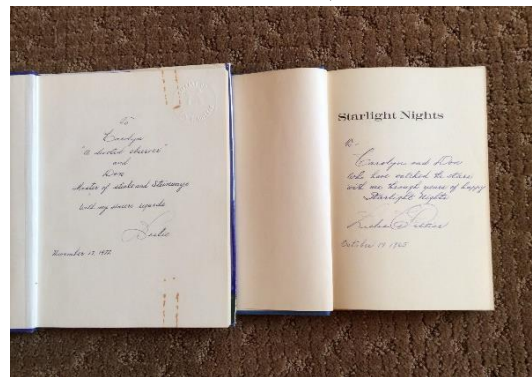 To
Carolyn
"a devoted observer"
and
Don
Master of steaks and Steinways
with my sincere regards
Leslie
November 13, 1982
Starlight Nights
To -
Carolyn and Don
who have watched the stars
with me through years of happy
Starlight Nights
October 19 1965